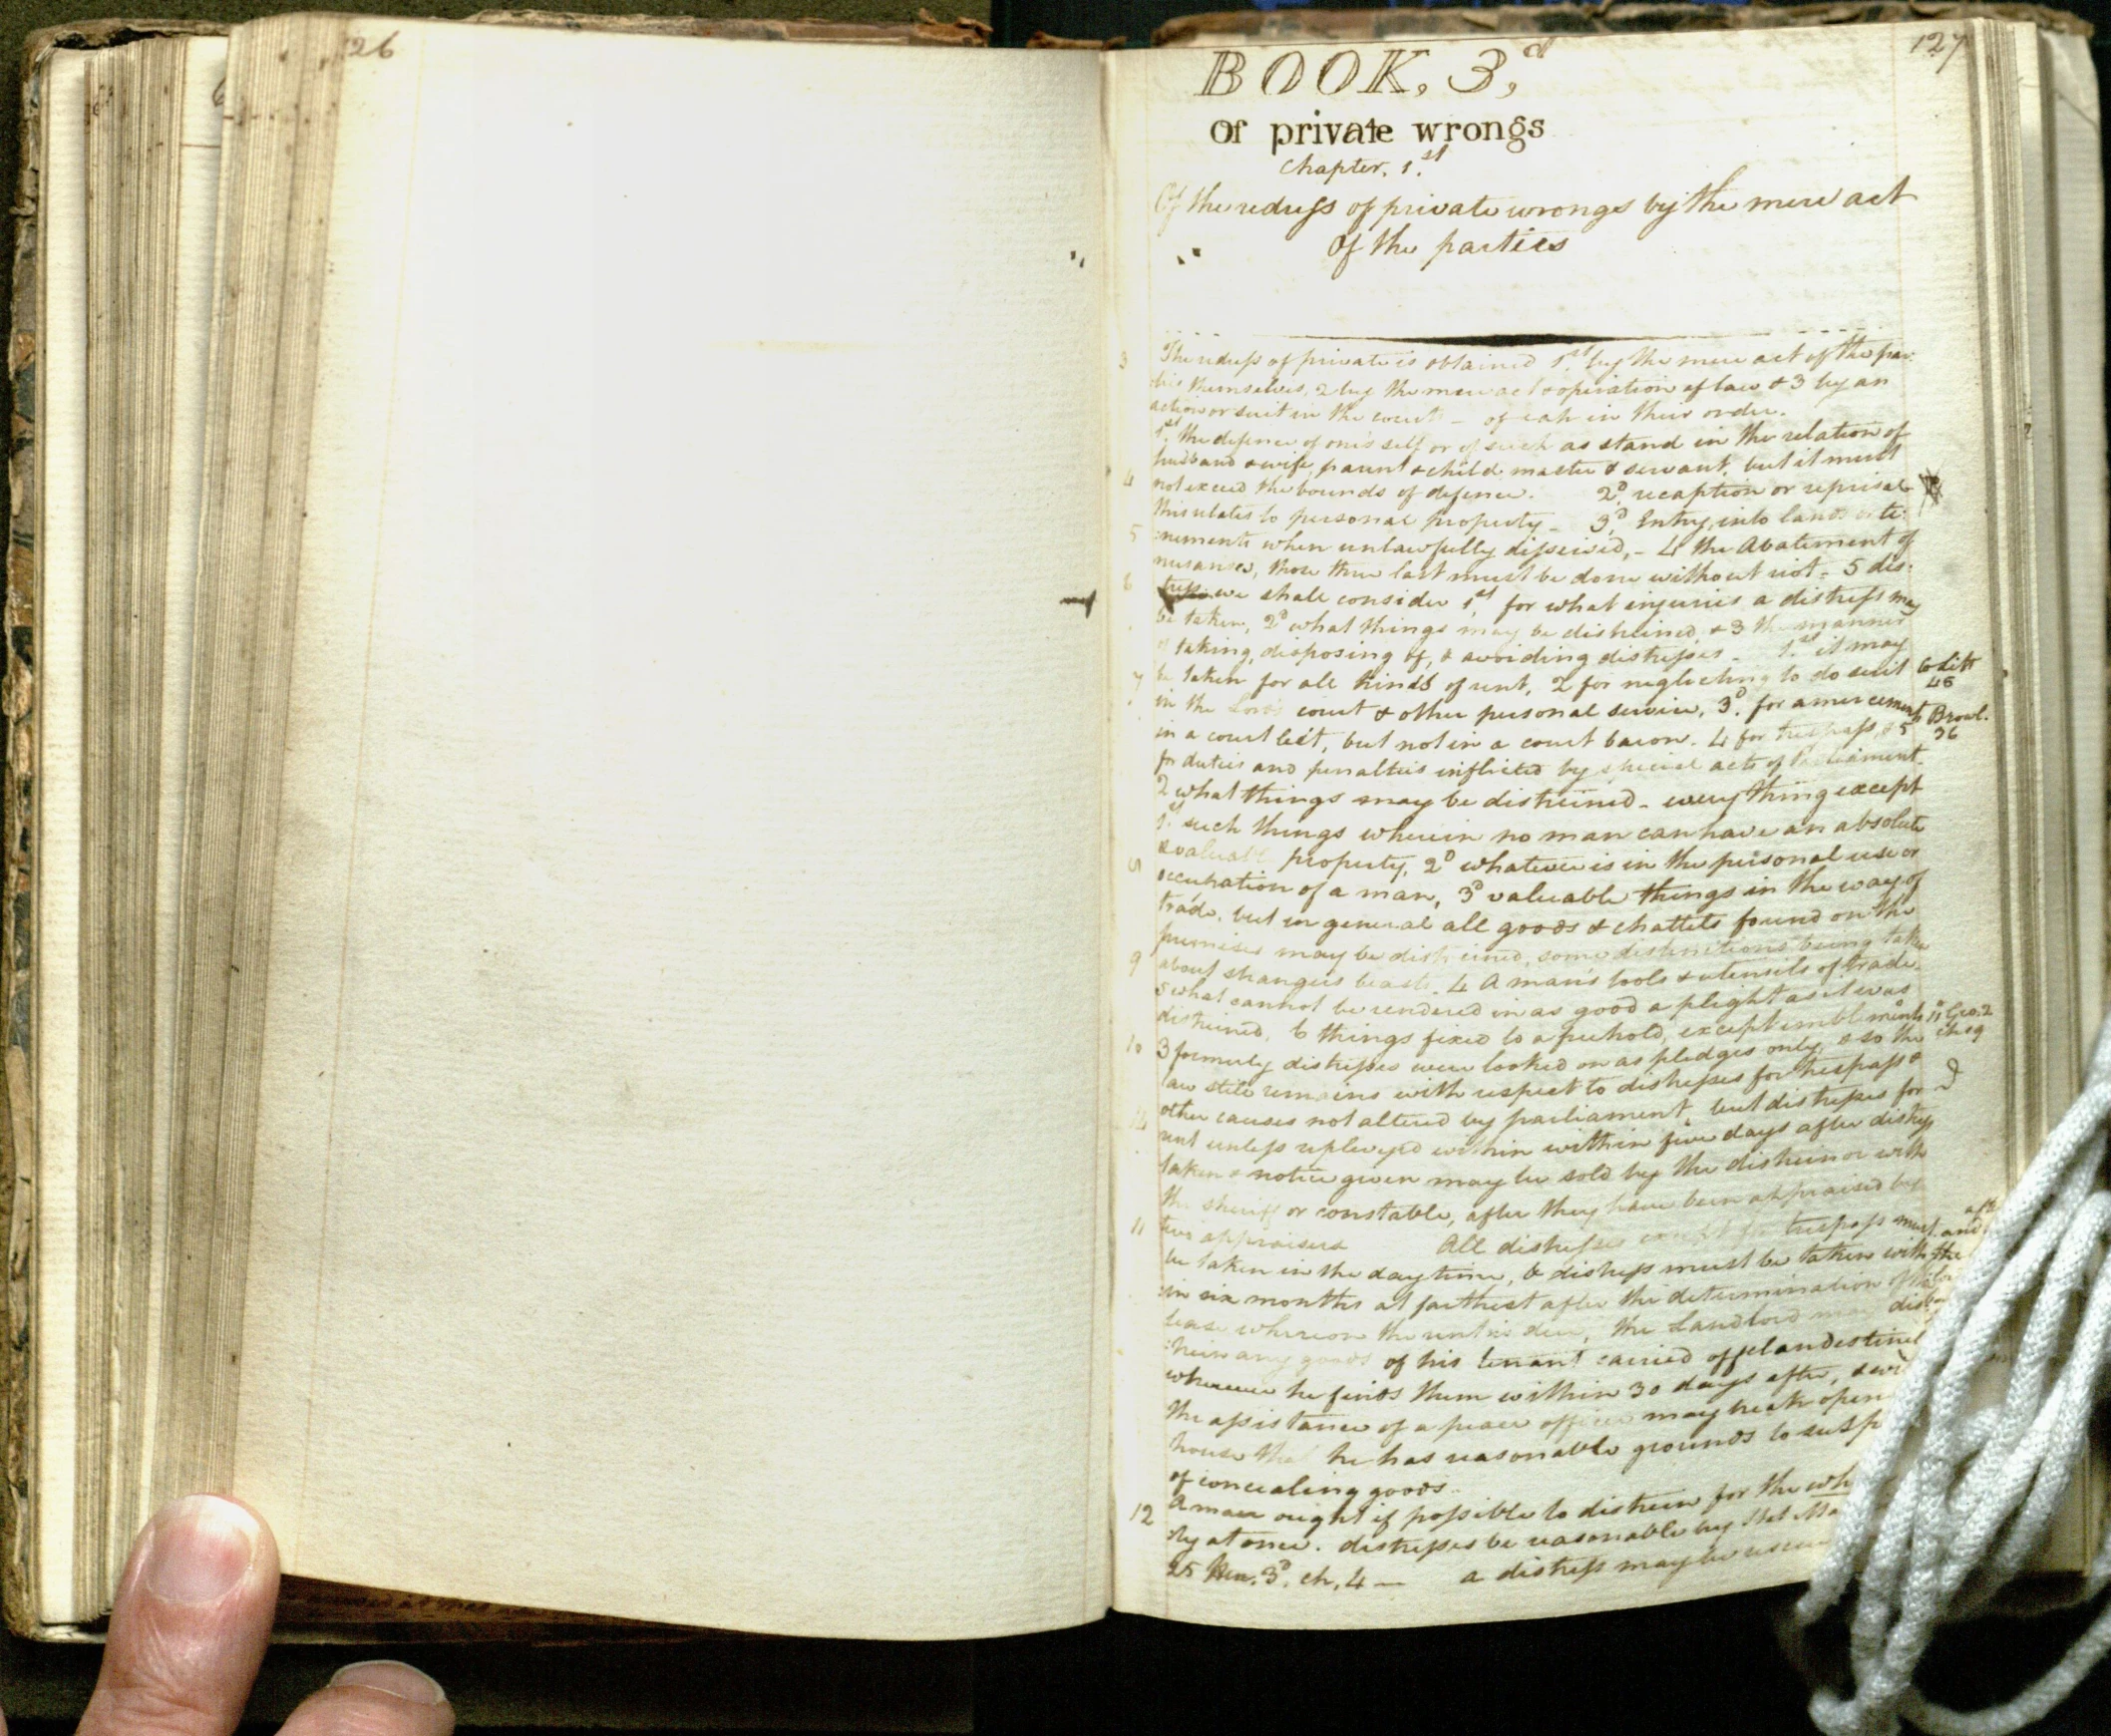 126
127
BOOK. 3,d
Of private wrongs
Chapter. 1.st
Of the redress of private wrongs by the mere act
Of the parties
3 The redress of private is obtained 1.st by the mere act of the par:
:ties themselves, 2 by the mere act & operation of law & 3 by an
action or suit in the courts - of eah in their order.
1.st the defence of one's self or of such as stand in the relation of
husband & wife, parent & child master & servant, but it must
4 not exceed the bounds of defence. 2.D recaption or reprisal
this relates to personal property - 3.D Entry, into lands or te:
5 :nements when unlawfully disseised, - 4 the Abatement of
nusances, those three last must be done without riot - 5 dis:
6 tress we shall consider 1.st for what injuries a distress may
be taken, 2.D what things may be distreined, & 3 the manner
of taking, disposing of, & avoiding distresses - 1.st it may
7 be taken for all kinds of rent, 2 for neglecting to do suit Co Litt 46
in the Lords court & other personal service, 3.D for amercements Brownl. 36
in a court leet, but not in a court baron. 4 for trespass, & 5
for duties and penalties inflicted by special acts of Parliament -
2 what things may be distreined - every thing except
1.st such things wherein no man can have an absolute
8 & valuable property, 2.D whatever is in the personal use or
occupation of a man, 3.D valuable things in the way of
trade, but in general all goods & chattels found on the
premises may be distreined, some distinctions being taken
9 about strangers beasts. 4 A man's tools & utensils of trade.
5 what cannot be rendered in as good a plight as it was
distreined, 6 things fixed to a freehold, except emblements 11 Geo. 2 ch 19
10 3 formerly distresses were looked on as pledges only, & so the
law still remains with respect to distresses for trespass &
other causes not altered by parliament, but distresses for
14 rent unless replevyed within within five days after distress
taken & notice given may be sold by the distreinor with
the sheriff or constable, after they have been appraised by
11 two appraisers All distresses except for trespass must
be taken in the day time, & distress must be taken with
:in six months at farthest after the determination of the
lease whereon the rent is due, the Landlord may dis
:trein any goods of his tenant carried off clandestinel
wherever he finds them within 30 days after, & wi
the assistance of a peace officer may break open
house that he has reasonable grounds to susp
of concealing goods.
12 A man ought if possible to distrein for the wh
:ty at once. distresses be reasonable by Stat Ma
25 Hen. 3.D ch. 4 — a distress may be